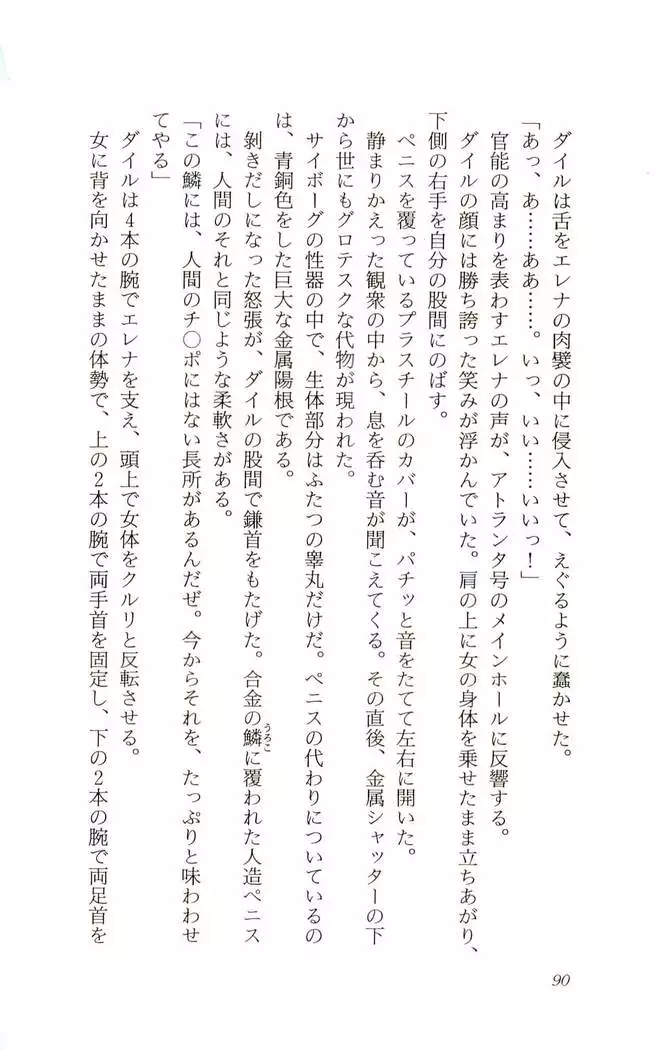 ダイルは舌をエレナの肉襞の中に侵入させて、えぐるように蠢かせた。
「あっ、あ……ああ……。いっ、いい……いいっ！」
官能の高まりを表わすエレナの声が、アトランタ号のメインホールに反響する。
ダイルの顔には勝ち誇った笑みが浮かんでいた。肩の上に女の身体を乗せたまま立ちあがり、
下側の右手を自分の股間にのばす。
ペニスを覆っているプラスチールのカバーが、パチッと音をたてて左右に開いた。
静まりかえった観衆の中から、息を呑む音が聞こえてくる。その直後、金属シャッターの下
から世にもグロテスクな代物が現われた。
サイボーグの性器の中で、生体部分はふたつの睾丸だけだ。ペニスの代わりについているの
は、青銅色をした巨大な金属陽根である。
剝きだしになった怒張が、ダイルの股間で鎌首をもたげた。合金の鱗に覆われた人造ペニス
うろこ
には、人間のそれと同じような柔軟さがある。
「この鱗には、人間のチ〇ポにはない長所があるんだぜ。今からそれを、たっぷりと味わわせ
てやる」
ダイルは4本の腕でエレナを支え、頭上で女体をクルリと反転させる。
女に背を向かせたままの体勢で、上の2本の腕で両手首を固定し、下の2本の腕で両足首を
90